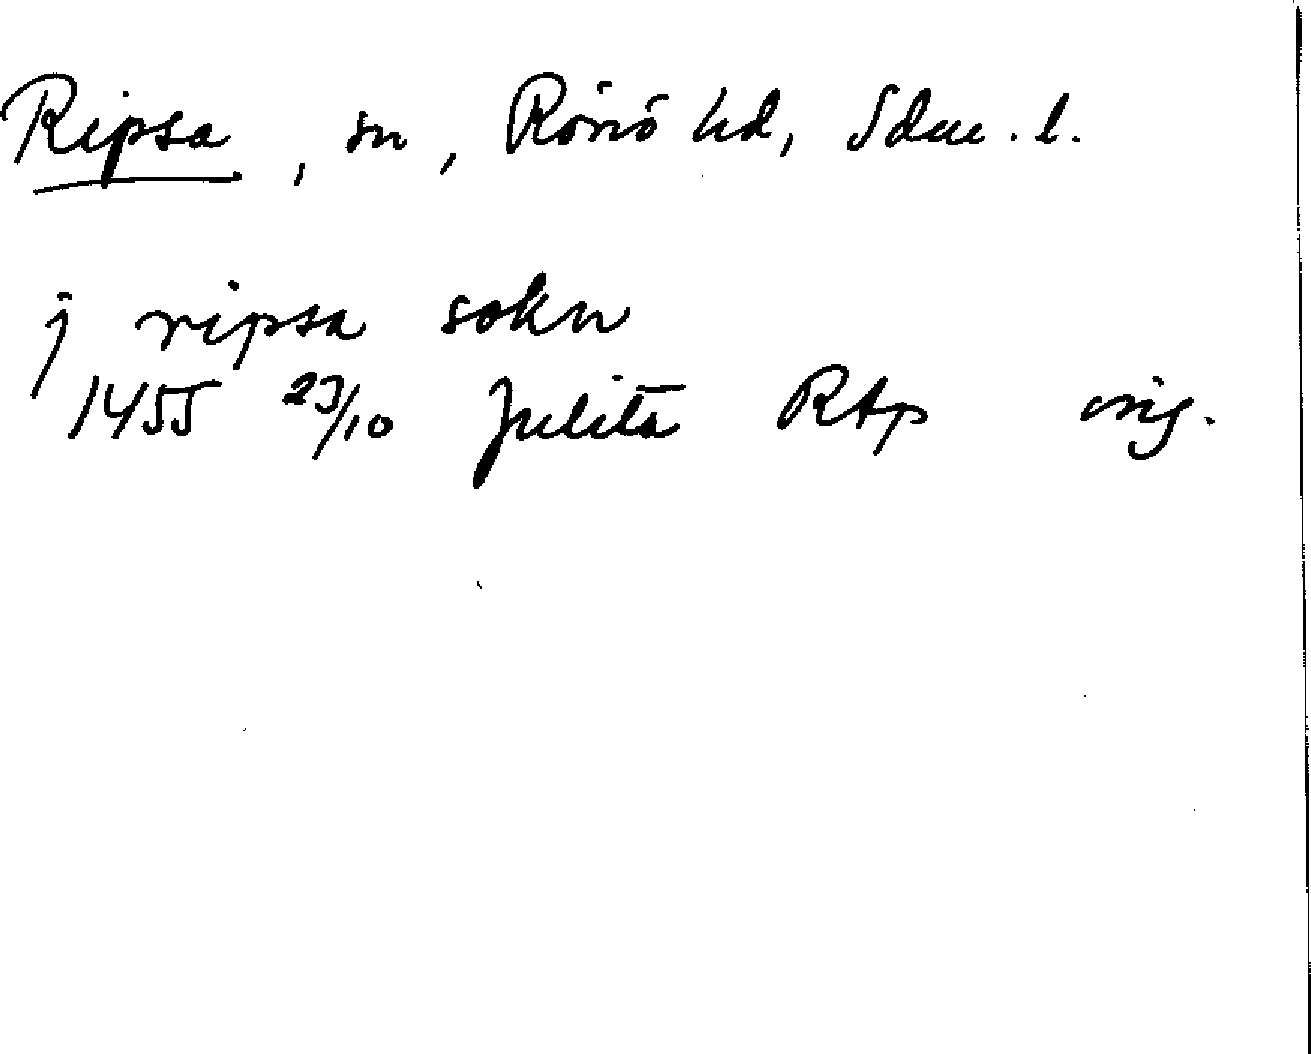 Ripsa, sn, Rönö hd, Sdm. l.
j ripsa sokn
1455 23/10 Julita RAp orig.